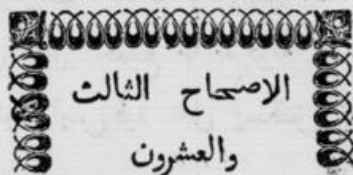 الاصحاح الثالث
والعشرون